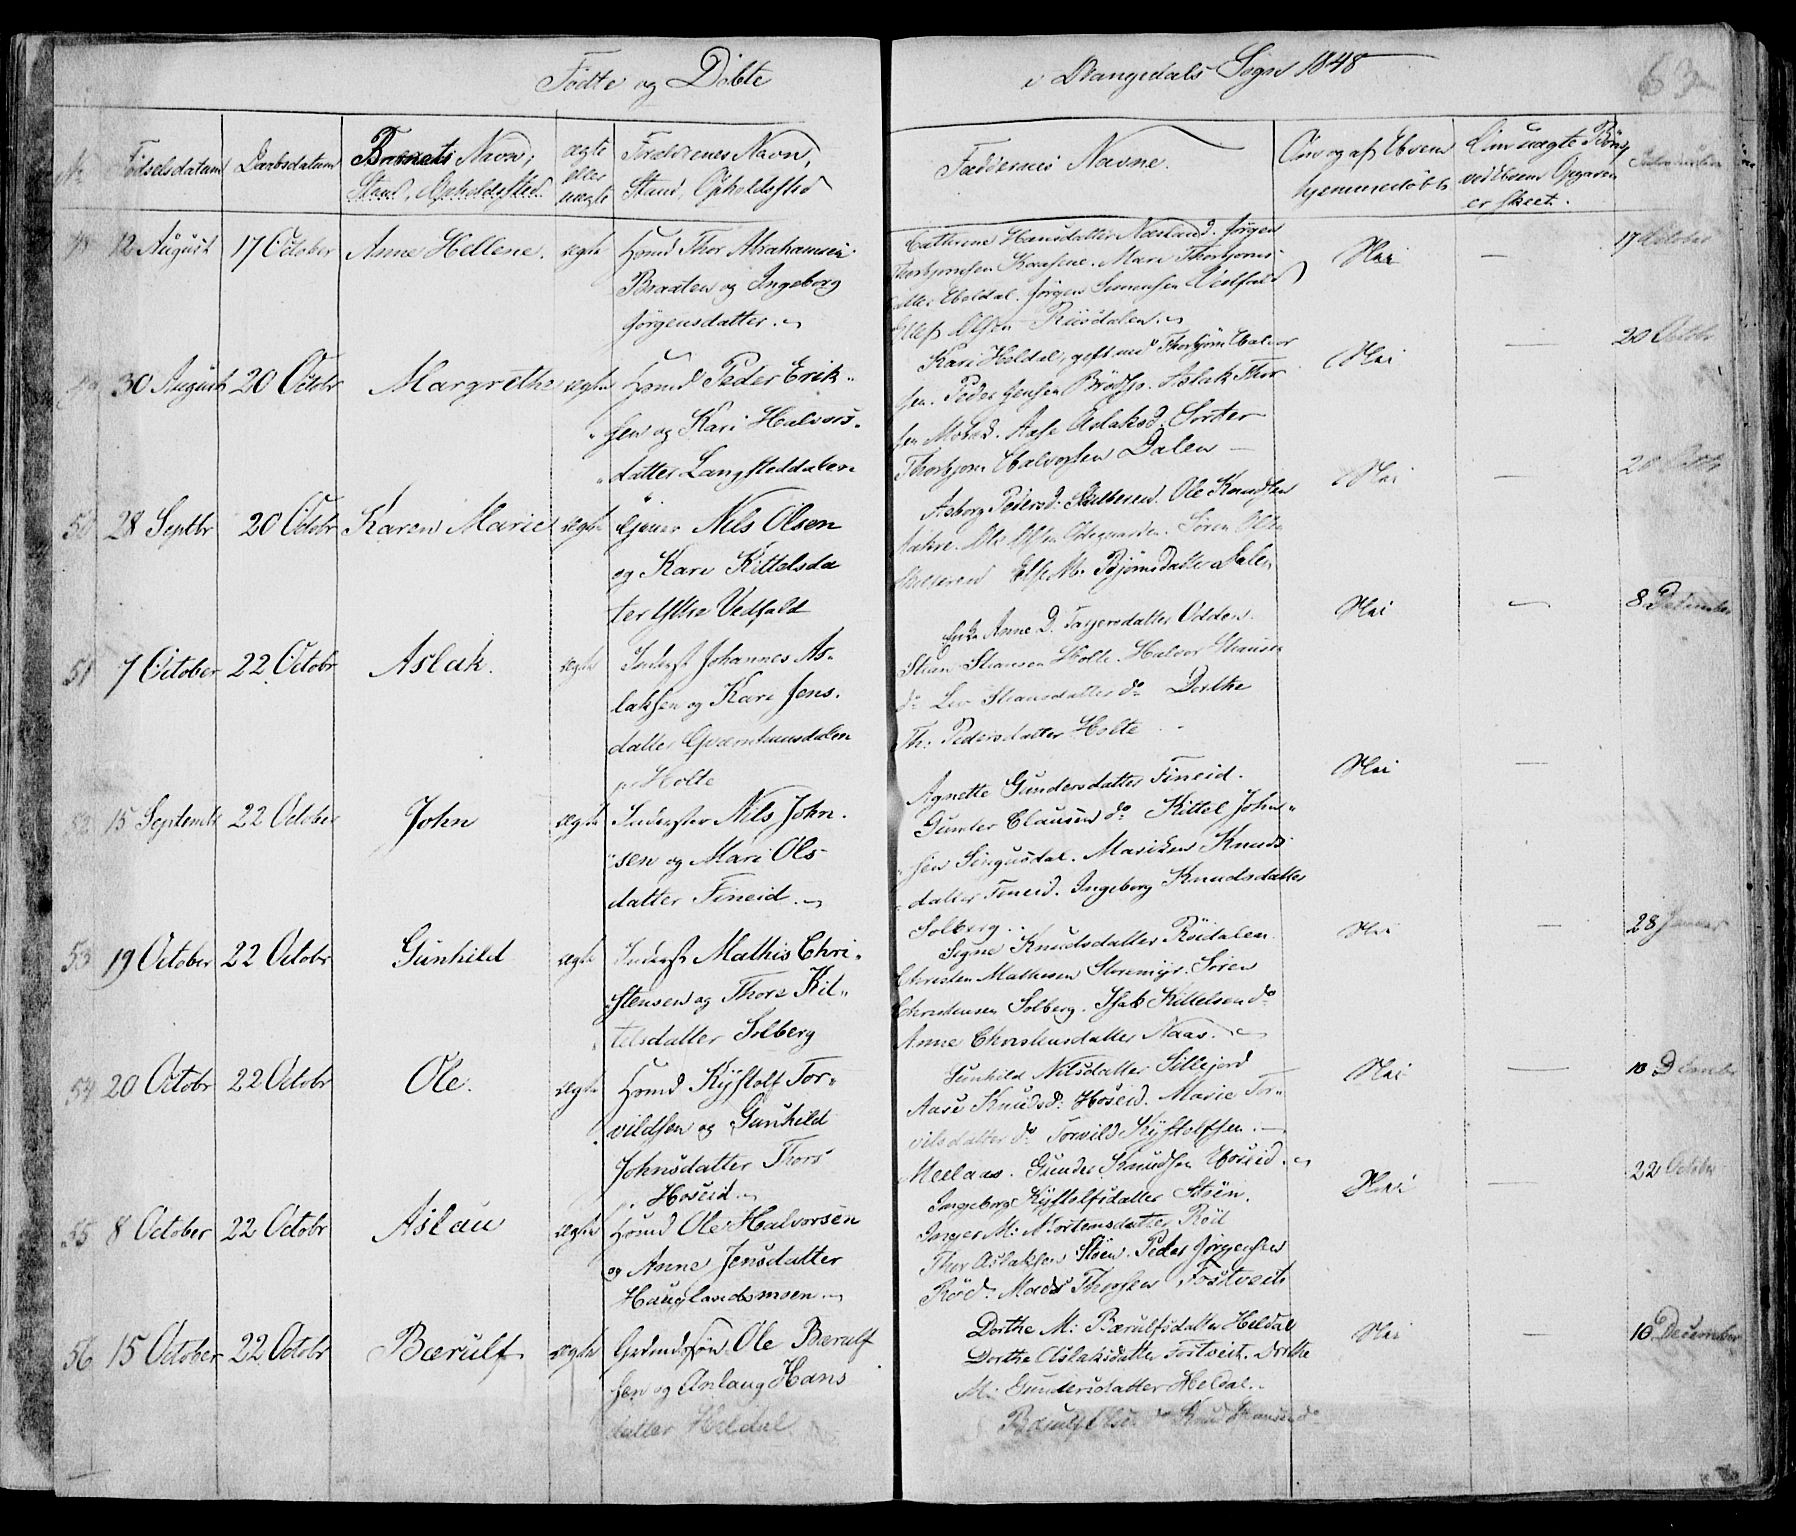 Fødte og Døbte
i Drangedals Sogn 1848
63
No Fødselsdatum Daabsdatum Barnets Navn, Stand, Opholdssted ægte eller uægte Forældrenes Navn, Stand, Opholdsted
Faddernes Navne.
Om og af Hvem hjemmedøbt
Om uægte Børn, ved hvem Opgaven er skeet.
12 August 17 October Anne Hellene. ægte Hmd Thor Abrahamsen
Braaten og Ingeborg
Jørgensdatter.
Cathrine Hansdatter Næsland. Jørgen
Mari Thorbjørns
datter Jørgen Simensen Vedfald
Olsen Riisdalen.
Nei — 17 October
30 August 20 Octobr Margrethe ægte Hmd Peder Erik-
sen og Kari Halvors-
datter Langsteddalen
Kari Heldal, gift med Thorbjørn Halvor
sen. Peder Jensen Brødsø. Aslak Thor
sen Aase Aslaksd. Sorter
Thorbjørn Halvorsen Dalen —
Nei — 20 Octobr
50 28 Septbr 20 Octobr Karen Marie ægte Nils Olsen
og Kari Kittelsda
ter Ystre Vedfald
Asborg Pedersd. Ole Knudsen
Ole Olsen Søren Olsen
Else M. Bjørnsdatter Dalen
Nei — 20 Octb
51 7 October 22 Octobr Aslak. ægte Inderst Johannes As-
laksen og Kari Jens-
datter
p. Holte
Anne D. Tarjersdatter Odden.
Stian Stiansen Holte. Halvor Stiansen
do Liv Stiansdatter do Dorthe
Th: Pedersdatter Holte
Nei — 8 December
52 15 Septembr 22 October John ægte Inderster Nils John-
sen og Mari Ols-
datter Fineid.
Agnette Gundersdatter Fineid.
Gunder Clausen do Kittel John-
sen Singusdal. Mariken Knuds
datter Fineid. Ingeborg Knudsdatter
Solberg.
Nei —
53 19 October 22 Octobr Gunhild ægte Inderst Mathis Chri-
stensen og Thore Kit-
telsdatter Solberg
Signe Knudsdatter Röidalen.
Christen Mathisen Storemyr. Søren
Christensen Solberg. Isak Kittelsen do
Anne Christensdatter Naas.
Nei — 28 Januar
54 20 Octobr 22 Octobr Ole. ægte Hmd Kystolf Tor-
vildsen og Gunhild
Johnsdatter Thors
p. Hoseid.
Gunhild Nilsdatter Sillejord
Aase Knudsd: Hoseid. Marie Tor-
vilsdatter do Torvild Kystolfsen. —
Meelaas. Gunder Knudsen Hoseid.
Nei — 10 Decembr
55 8 October 22 Octobr Aslau ægte Hmd Ole Halvorsen
og Anne Jensdatter
Hauglandsmoen.
Ingeborg Kystolfsdatter Støen.
Inger M: Mortensdatter Röd
Thor Aslaksen Støen. Peder Jørgensen
Röd. Mads Thorsen Fostveit
Nei — 22 October
56 15 October 22 Octobr Bærulf ægte Ole Bærulf
sen og Anlaug Hans
datter Heldal
Dorthe M: Bærulfsdatter Heldal
Dorthe Aslaksdatter Fostveit. Dorthe
M: Gundersdatter Heldal.
Bærulf Olsen do Knud Hansen do
Nei — 10 December